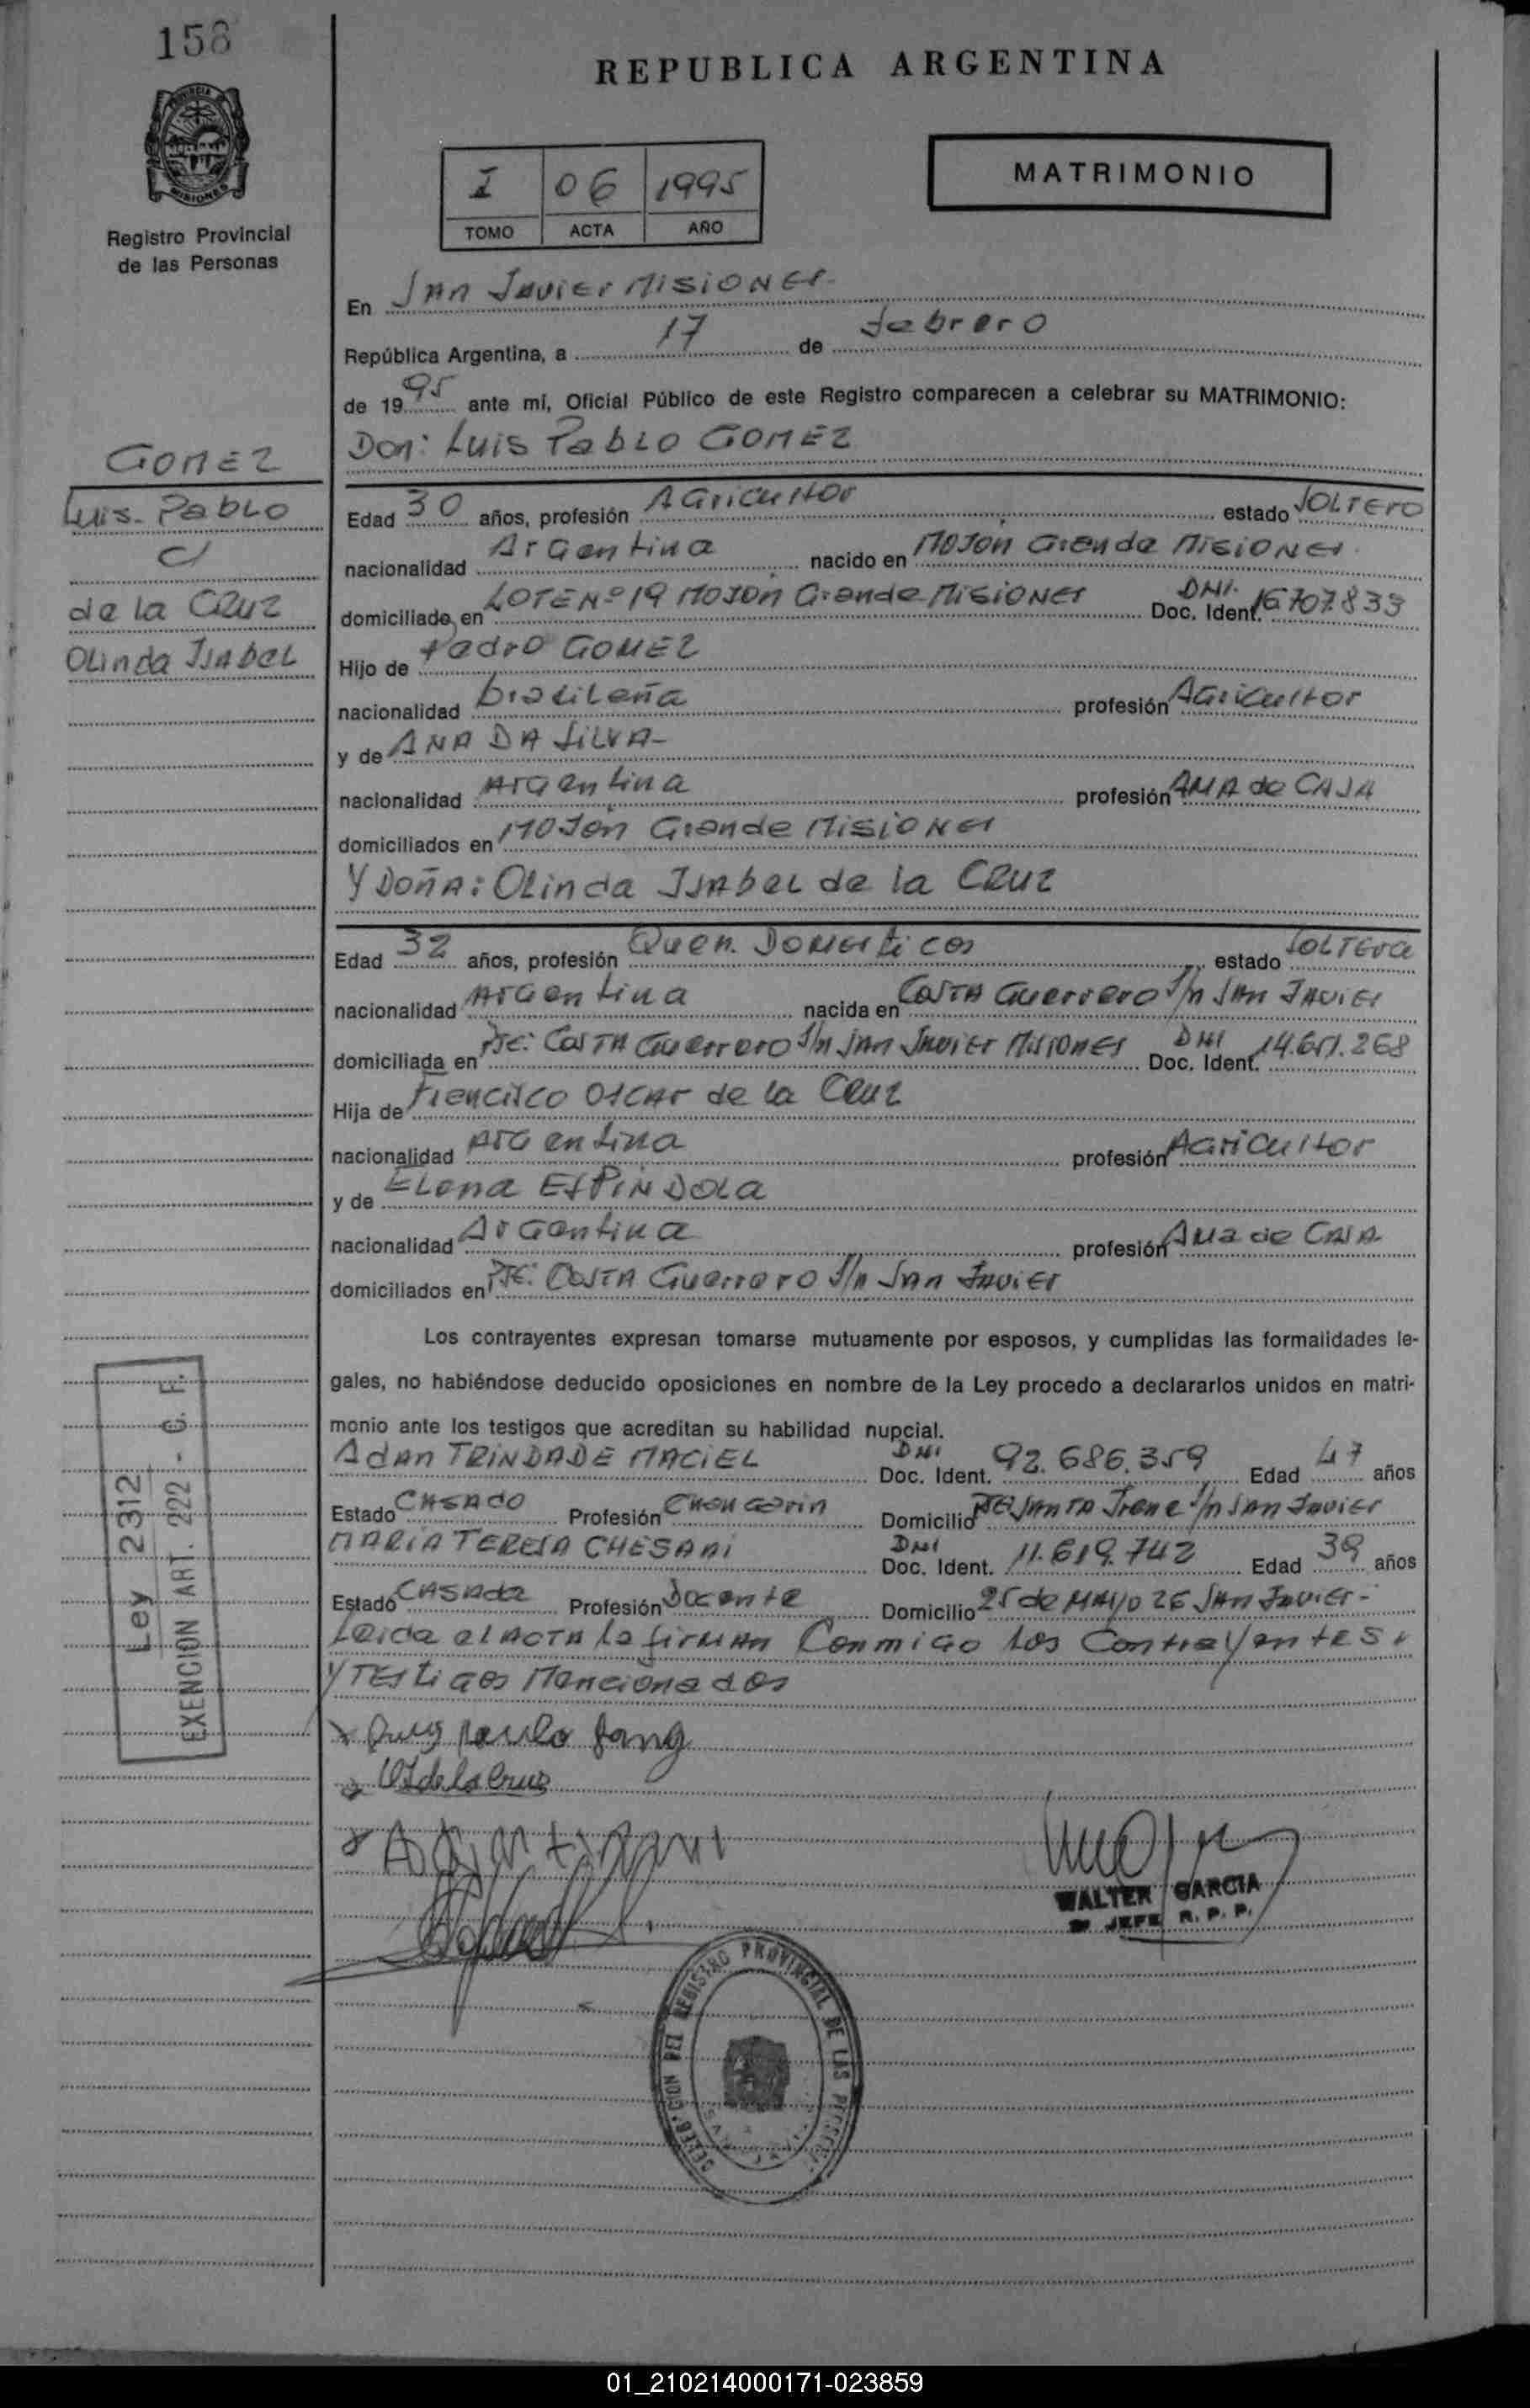 158
REPUBLICA ARGENTINA
I 06 1995
TOMO ACTA AÑO
MATRIMONIO
Registro Provincial
de las Personas
En San Javier Misiones.
República Argentina, a 17 de febrero
de 1995 ante mí, Oficial Público de este Registro comparecen a celebrar su MATRIMONIO:
Don: Luis Pablo GOMEZ
GOMEZ
Luis. Pablo
c/
de la CRUZ
Olinda Isabel
Edad 30 años, profesión Agricultor estado Soltero
nacionalidad Argentina nacido en Mojón Grande Misiones.
domiciliado en LOTE Nº 19 Mojón Grande Misiones DNI. Doc. Ident. 16707833
Hijo de Pedro GOMEZ
nacionalidad brasileña profesión Agricultor
y de ANA DA SILVA-
nacionalidad Argentina profesión AMA de CASA
domiciliados en Mojón Grande Misiones
Y DOÑA: Olinda Isabel de la CRUZ
Edad 32 años, profesión Queh. Domesticos estado Soltera
nacionalidad Argentina nacida en Costa Guerrero S/n San Javier
domiciliada en Pje: Costa Guerrero S/n San Javier Misiones DNI Doc. Ident. 14.611.268
Hija de Francisco Oscar de la Cruz
nacionalidad Argentina profesión Agricultor
y de Elena ESPINDOLA
nacionalidad Argentina profesión Ama de CASA.
domiciliados en Pje: Costa Guerrero S/n San Javier
Los contrayentes expresan tomarse mutuamente por esposos, y cumplidas las formalidades le-
gales, no habiéndose deducido oposiciones en nombre de la Ley procedo a declararlos unidos en matri-
monio ante los testigos que acreditan su habilidad nupcial.
Adan TRINDADE MACIEL DNI Doc. Ident. 92.686.359 Edad 47 años
Estado CASADO Profesión Domicilio Pje Santa Irene S/n San Javier
MARIA TERESA CHESANI DNI Doc. Ident. 11.619.742 Edad 39 años
Estado CASADA Profesión Docente Domicilio 25 de MAYO 26 San Javier-
Leida el ACTA la firman Conmigo los Contrayentes.
y Testigos Mencionados
Ley 2312
EXENCION ART. 222 - C. F.
OI de la Cruz
WALTER GARCIA
JEFE R. P. P.
REGISTRO PROVINCIAL DE LAS
01_210214000171-023859